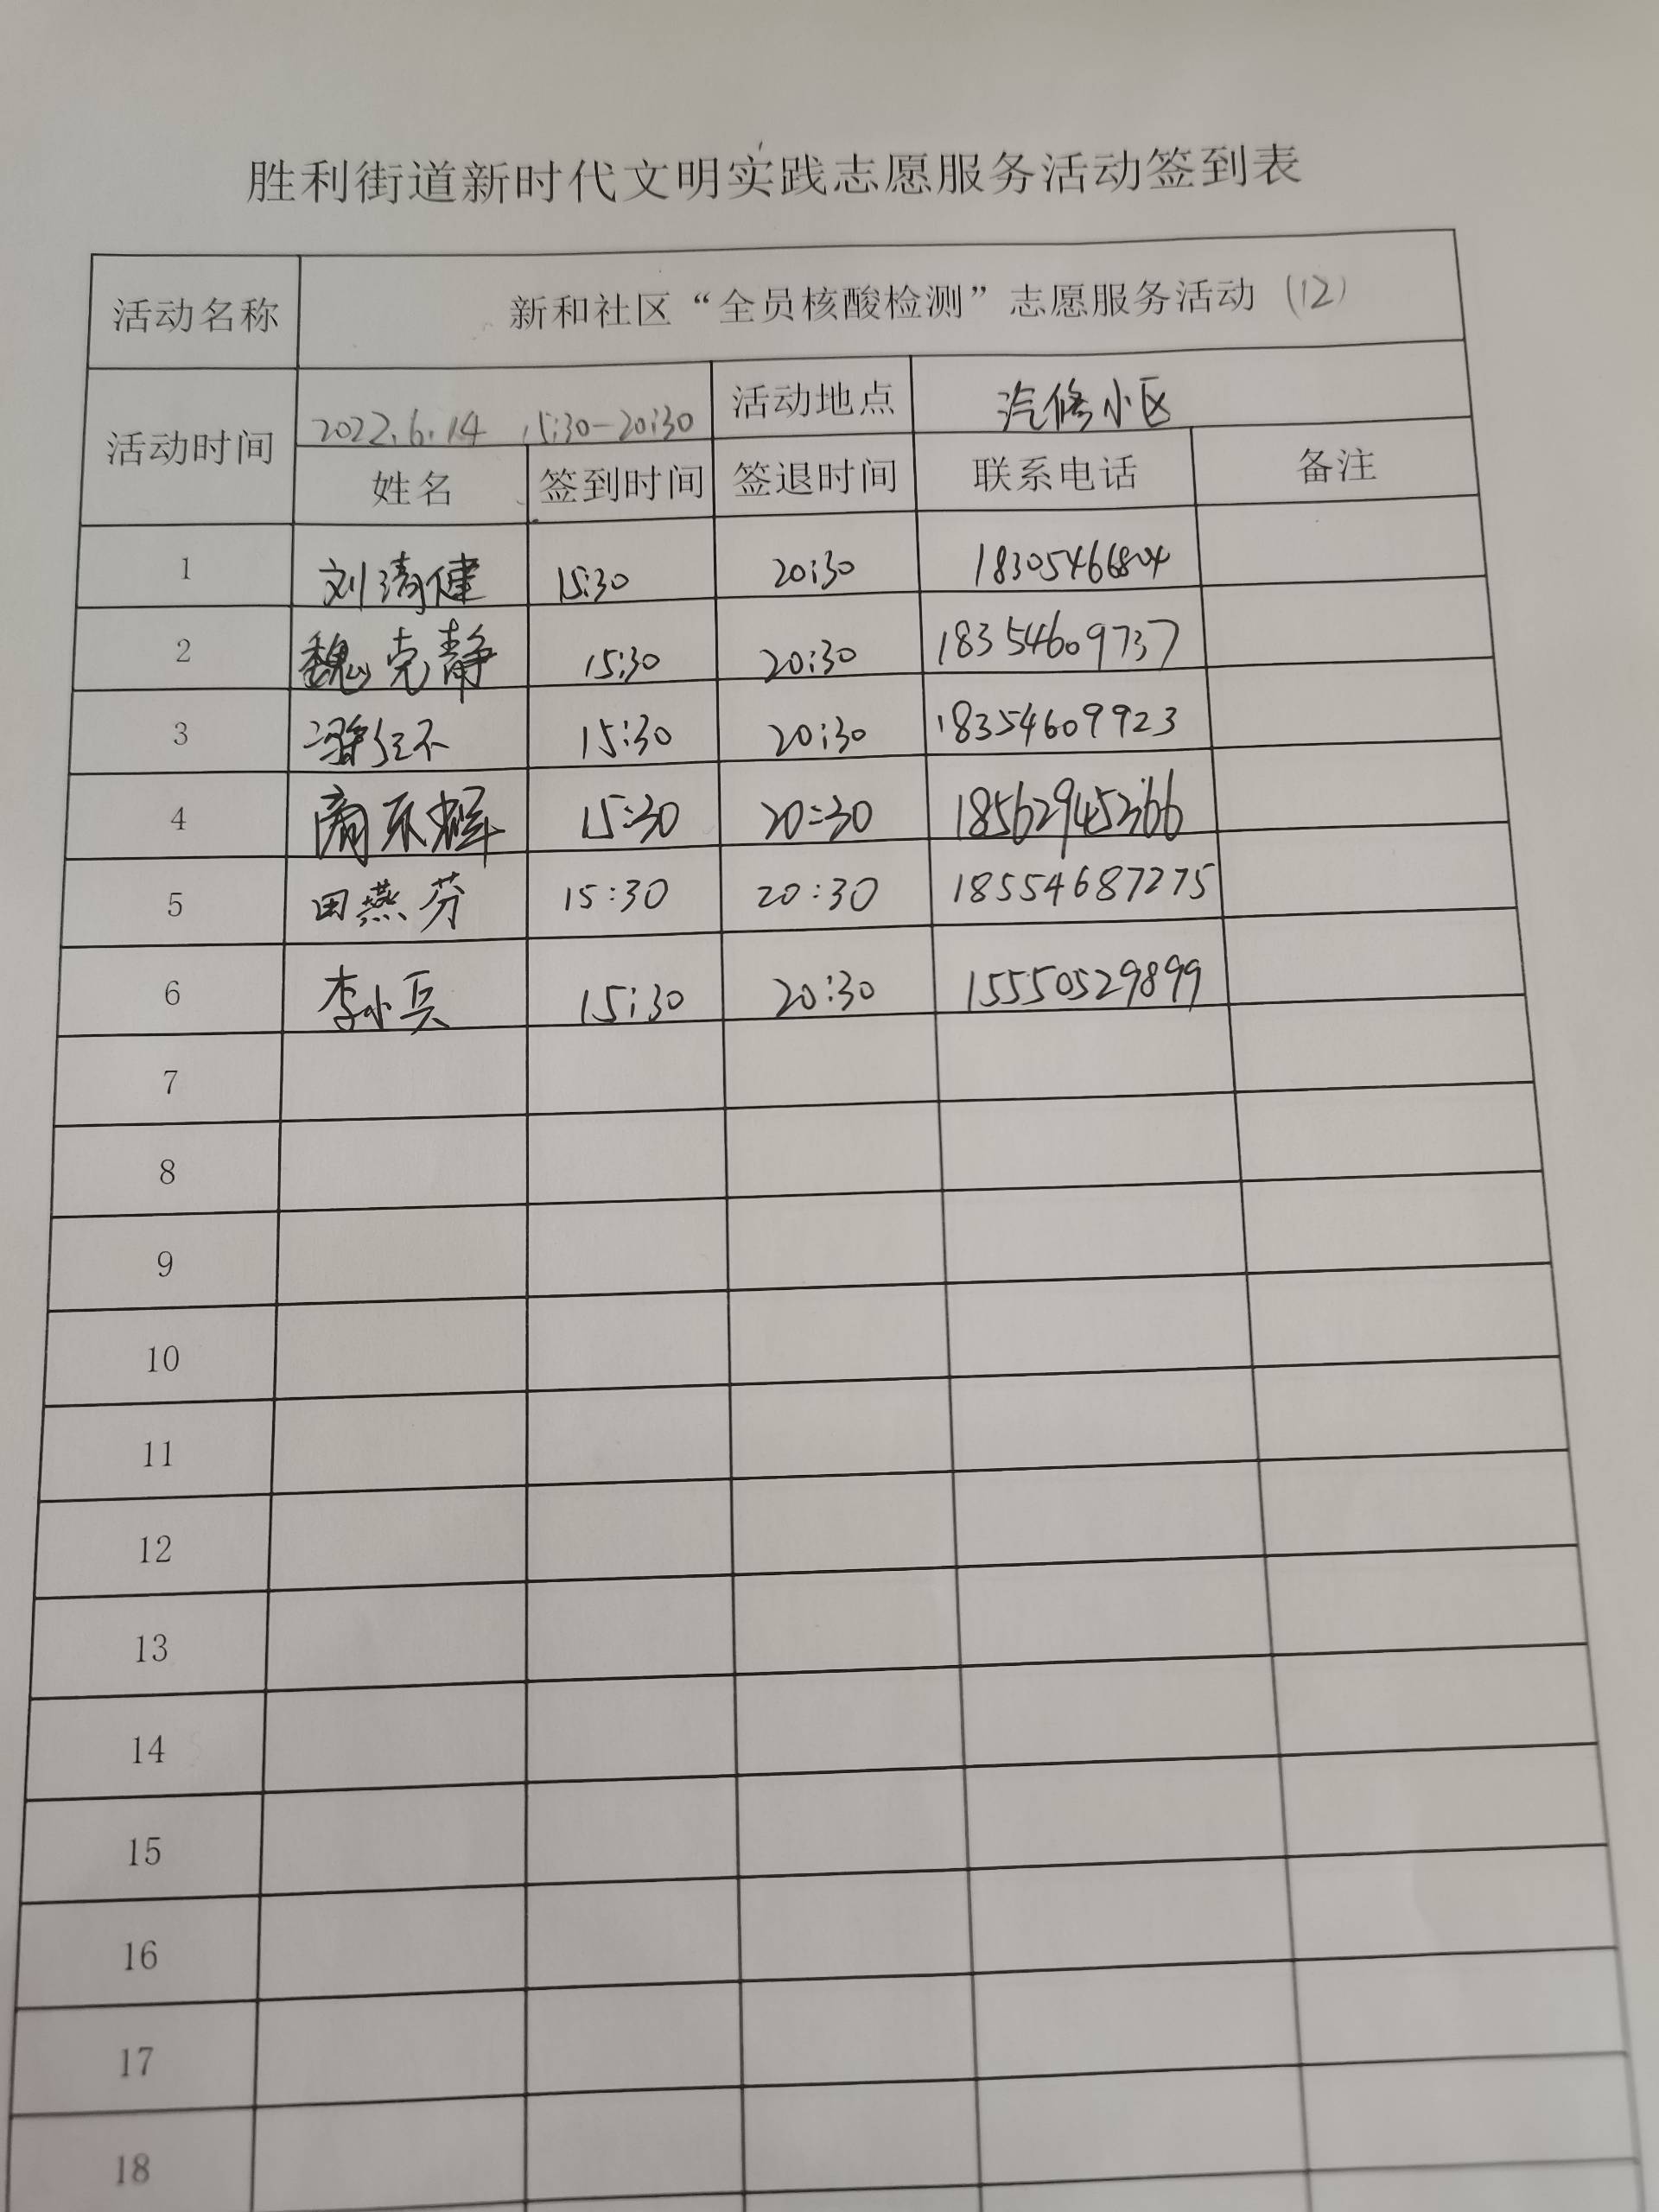 胜利街道新时代文明实践志愿服务活动签到表
活动名称 新和社区“全员核酸检测”志愿服务活动 (12)
活动时间 2022.6.14 15:30-20:30 活动地点 汽修小区
姓名 签到时间 签退时间 联系电话 备注
1 刘清健 15:30 20:30 18305466804
2 魏克静 15:30 20:30 18354609737
3 15:30 20:30 18354609923
4 15:30 20:30 18562945366
5 田燕芬 15:30 20:30 18554687275
6 李小兵 15:30 20:30 15550529899
7
8
9
10
11
12
13
14
15
16
17
18